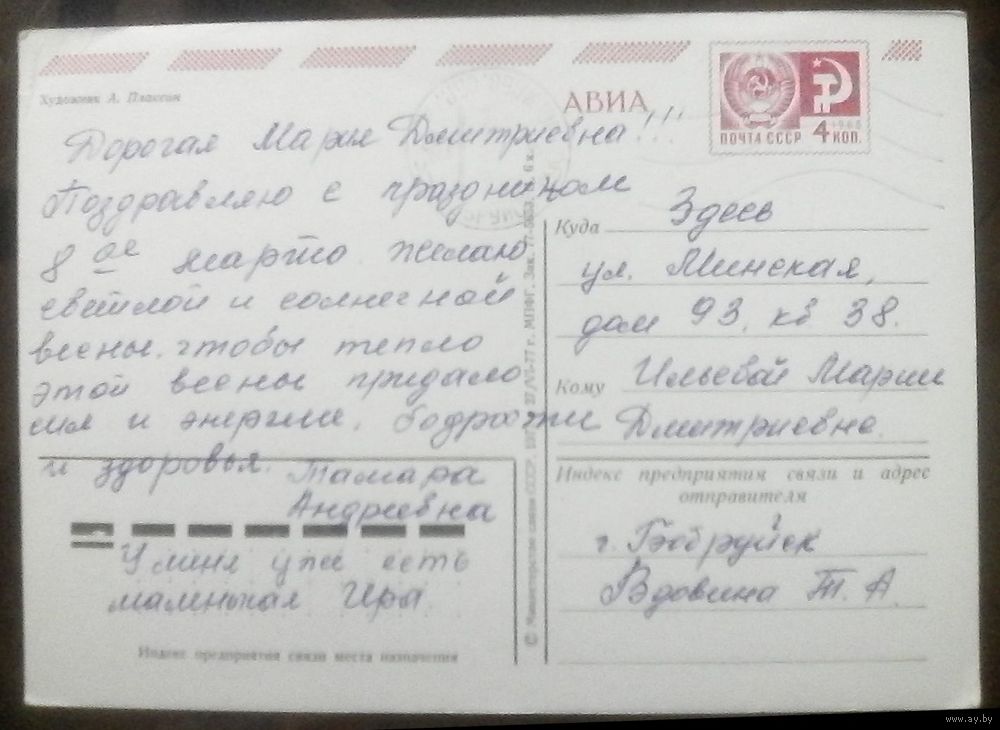 Художник А. Плаксин
АВИА
ПОЧТА СССР 4 КОП.
1966
Дорогая Мария Дмитриевна!!!
Поздравляю с праздником
8 ое марта. Желаю
светлой и солнечной
весны, чтобы тепло
этой весны придало
сил и энергии, бодрости
и здоровья. Тамара
Андреевна
У меня уже есть
маленькая Ира
Индекс предприятия связи места назначения
© Министерство связи СССР. 27/VI-77 г. МПФГ. Зак. 6 к.
Куда Здесь
ул. Минская,
дом 93, кв 38.
Кому Ильевой Марии
Дмитриевне.
Индекс предприятия связи и адрес
отправителя
г. Бобруйск
Вдовина Т. А.
www.ay.by